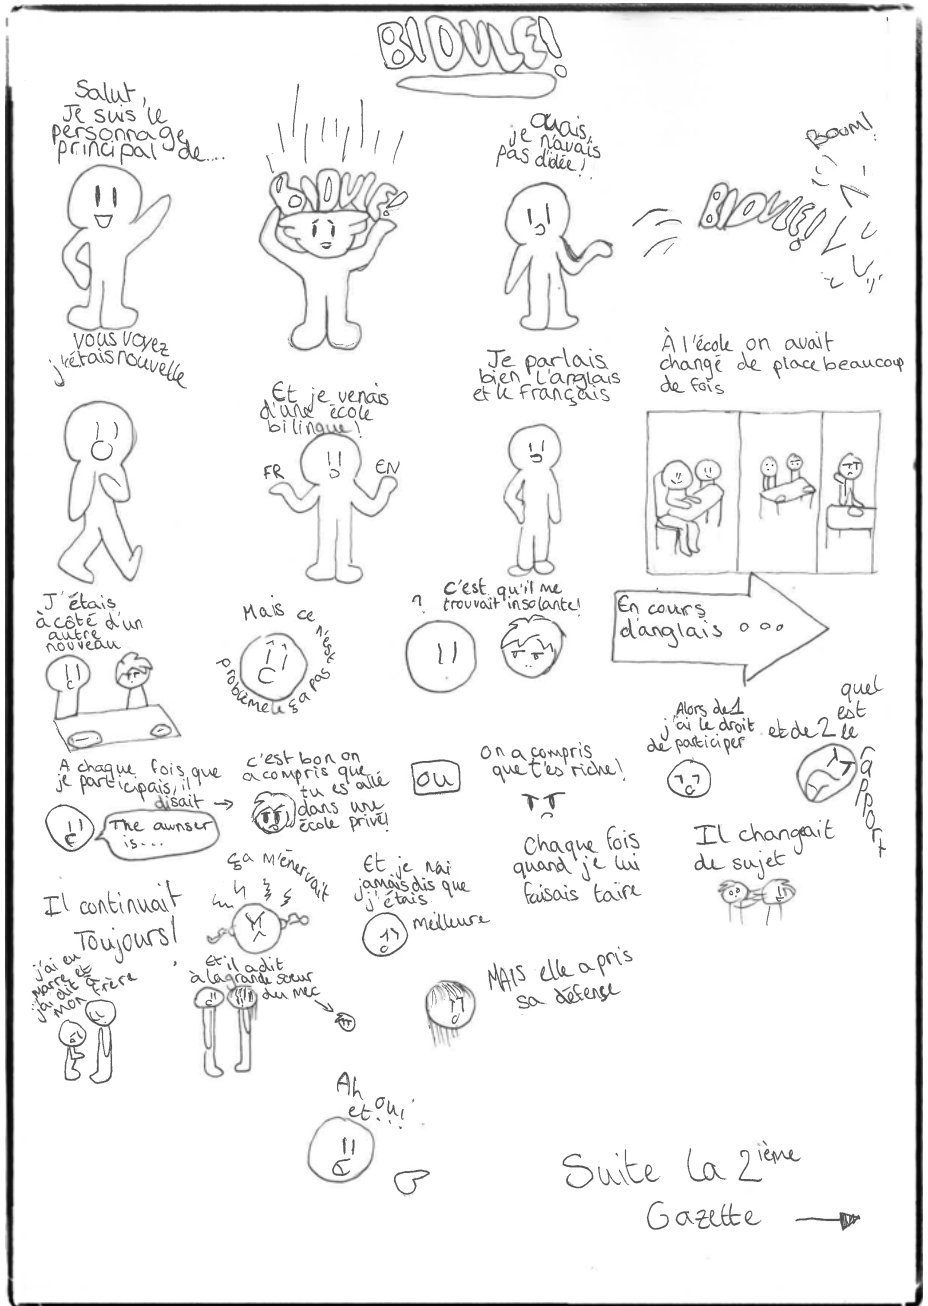 BIDULE!
Salut,
Je suis le
personnage
principal de....
BIDULE!
Ouais,
je n'avais
pas d'idée!
BIDULE!
BOOM!
vous voyez
j'étais nouvelle
Et je venais
d'une école
bilingue!
FR
EN
Je parlais
bien l'anglais
et le français
À l'école on avait
changé de place beaucoup
de fois
J'étais
à côté d'un
autre
nouveau
Mais ce
n'est
pas ça
le problème
?
c'est qu'il me
trouvait insolante!
En cours
d'anglais ...
A chaque fois que
je participais, il
disait →
The awnser
is...
c'est bon on
a compris que
tu es allé
dans une
école privé!
ou
On a compris
que t'es riche!
Alors de 1
j'ai le droit
de participer
et de 2
quel
est
le
rapport
Chaque fois
quand je lui
faisais taire
Il changeait
de sujet
Il continuait
Toujours!
ça m'énervait
Et je n'ai
jamais dis que
j'étais
meilleure
j'ai eu
marre et
j'ai dit à
mon frère
Et il a dit
à la grande soeur
du mec
MAIS elle a pris
sa défense
Ah
et oui
...
Suite la 2ième
Gazette